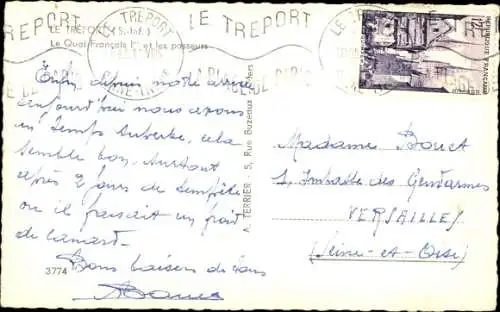 LE TREPORT
LE TREPORT
LE TRÉPORT (S.-Inf.)
Le Quai François Ier et les pêcheurs
Enfin depuis notre arrivée
aujourd'hui nous avons
un temps superbe, cela
semble bon. Surtout
après 2 jours de tempête
où il faisait un froid
de canard.
Bons baisers de tous
3774
A. TERRIER - 5, Rue Buzeaux
12F
REPUBLIQUE FRANÇAISE
Madame Bouet
1, Impasse des Gendarmes
VERSAILLES
(Seine-et-Oise)